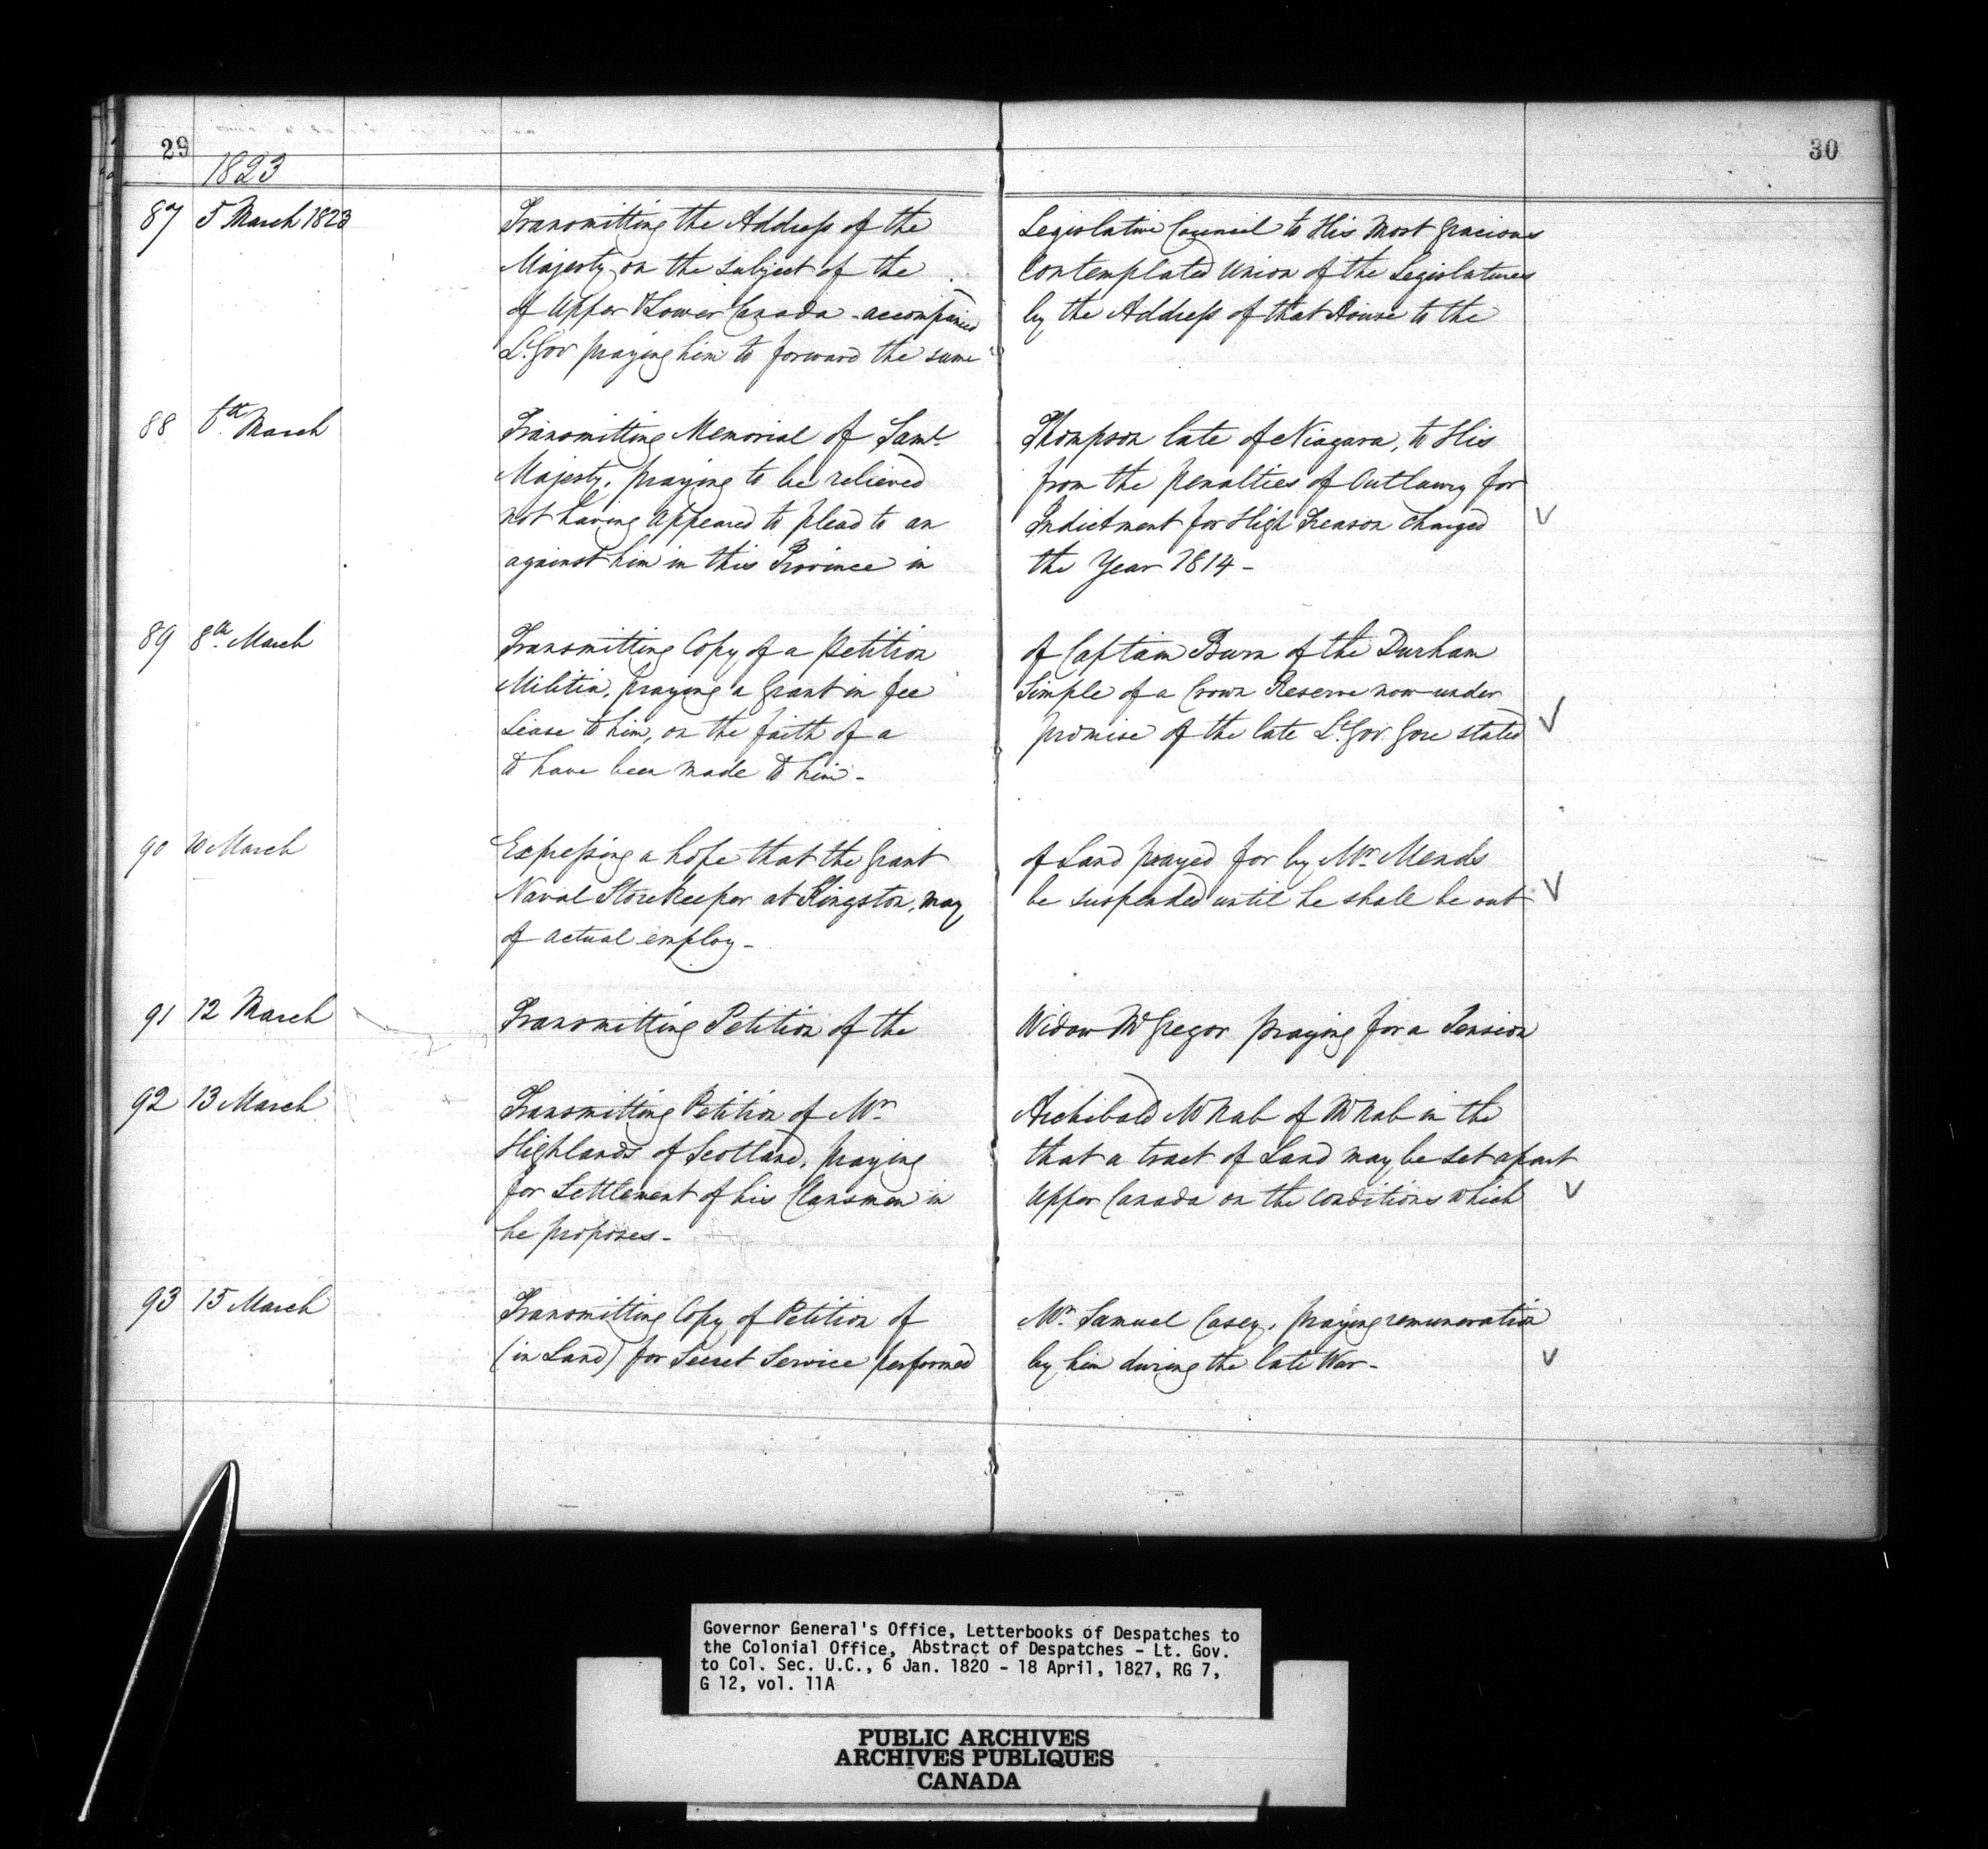 29
30
1823
87 5 March 1823 Transmitting the Address of the Legislative Council to His Most Gracious
Majesty on the subject of the Contemplated Union of the Legislatures
of Upper & Lower Canada - accompanied by the Address of that House to the
Lt. Gov praying him to forward the same
88 6th March Transmitting Memorial of Saml. Thompson late of Niagara, to His
Majesty, praying to be relieved from the penalties of Outlawry for
not having appeared to plead to an Indictment for High Treason charged
against him in this Province in the Year 1814 -
89 8th March Transmitting Copy of a Petition of Captain Burn of the Durham
Militia, praying a Grant in fee Simple of a Crown Reserve now under
Lease to him, on the faith of a promise of the late Lt. Gov. Gore stated
to have been made to him -
90 10 March Expressing a hope that the Grant of Land prayed for by Mr. Meads
Naval Storekeeper at Kingston, may be suspended until he shall be out
of actual employ -
91 12 March Transmitting Petition of the Widow McGregor praying for a Pension
92 13 March Transmitting Petition of Mr. Archibald McNab of McNab in the
Highlands of Scotland, praying that a tract of Land may be set apart
for Settlement of his Clansmen in Upper Canada on the conditions which
he proposes -
93 15 March Transmitting Copy of Petition of Mr. Samuel Casey, praying remuneration
(in Land) for Secret Service performed by him during the late War -
Governor General's Office, Letterbooks of Despatches to
the Colonial Office, Abstract of Despatches - Lt. Gov.
to Col. Sec. U.C., 6 Jan. 1820 - 18 April, 1827, RG 7,
G 12, vol. 11A
PUBLIC ARCHIVES
ARCHIVES PUBLIQUES
CANADA